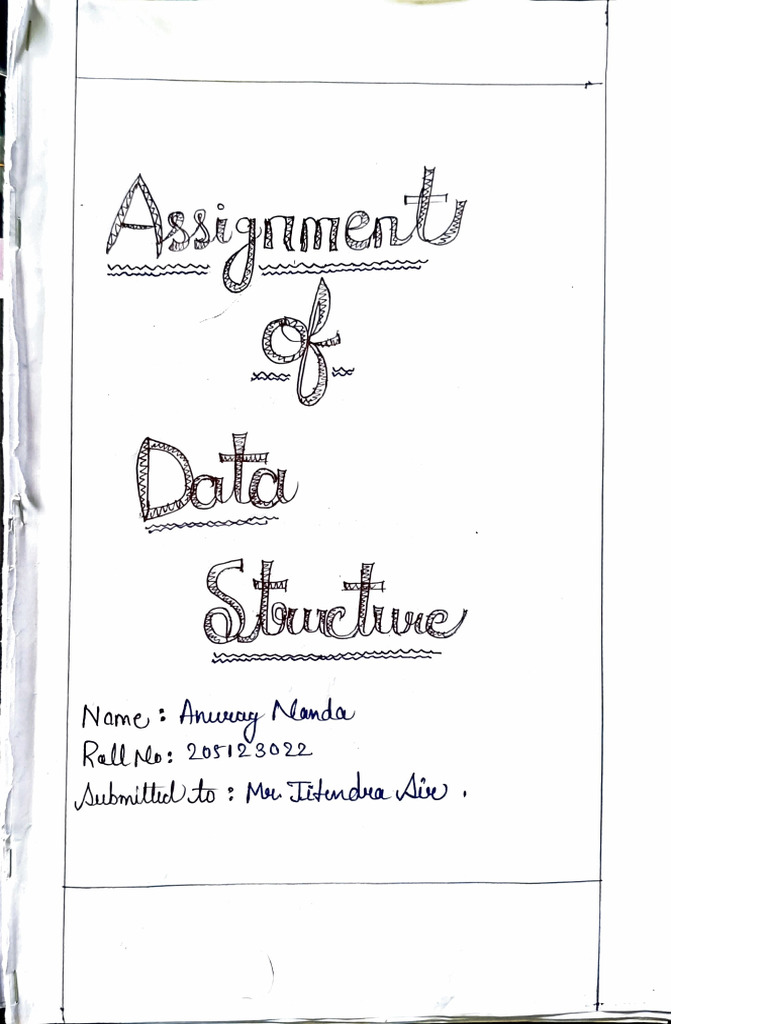 Assignment
of
Data
Structure
Name : Anurag Nanda
Roll No : 205123022
Submitted to : Mr. Jitendra Sir .